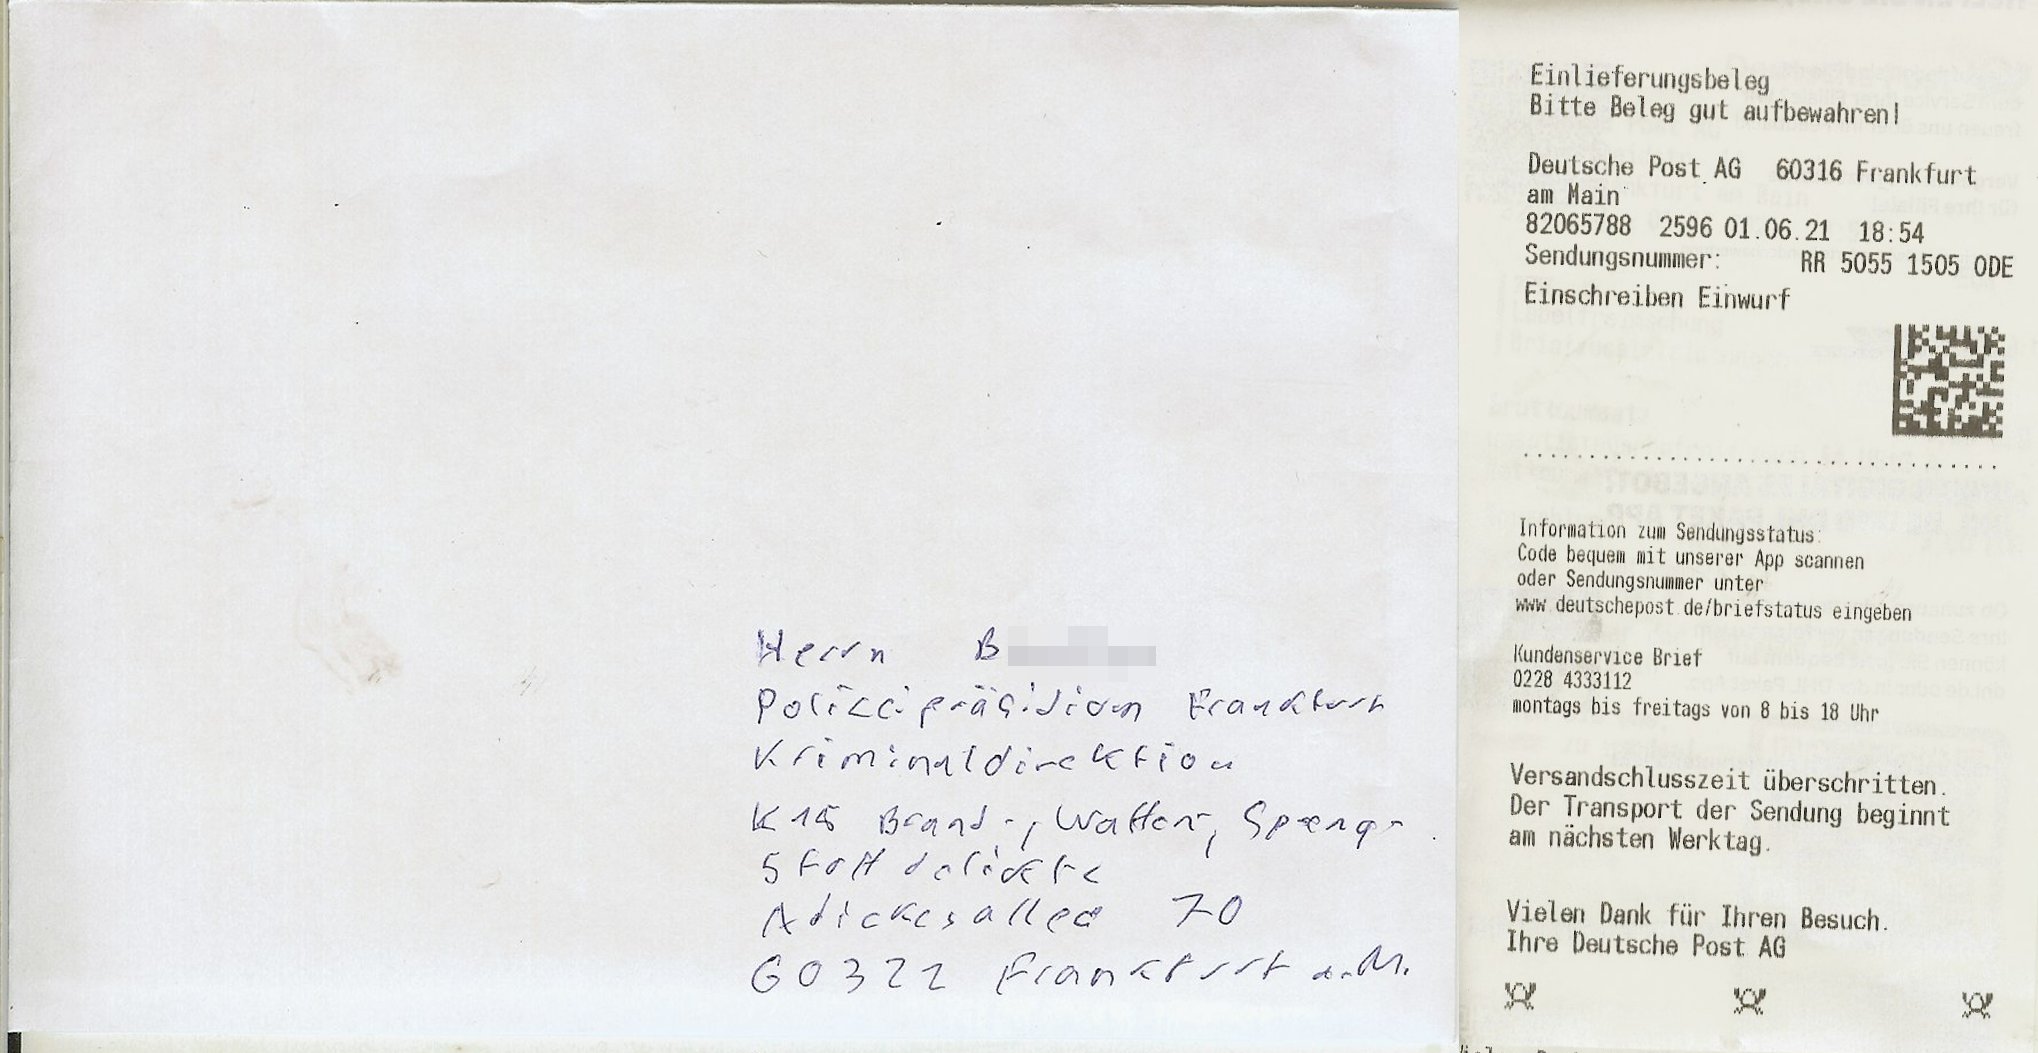 Herrn B
Polizeipräsidium Frankfurt
Kriminaldirektion
K15 Brand-, Waffen-, Spreng-
stoffdelikte
Adickesallee 70
60322 Frankfurt a.M.
Einlieferungsbeleg
Bitte Beleg gut aufbewahren!
Deutsche Post AG 60316 Frankfurt
am Main
82065788 2596 01.06.21 18:54
Sendungsnummer: RR 5055 1505 0DE
Einschreiben Einwurf
Information zum Sendungsstatus:
Code bequem mit unserer App scannen
oder Sendungsnummer unter
www.deutschepost.de/briefstatus eingeben
Kundenservice Brief
0228 4333112
montags bis freitags von 8 bis 18 Uhr
Versandschlusszeit überschritten.
Der Transport der Sendung beginnt
am nächsten Werktag.
Vielen Dank für Ihren Besuch.
Ihre Deutsche Post AG